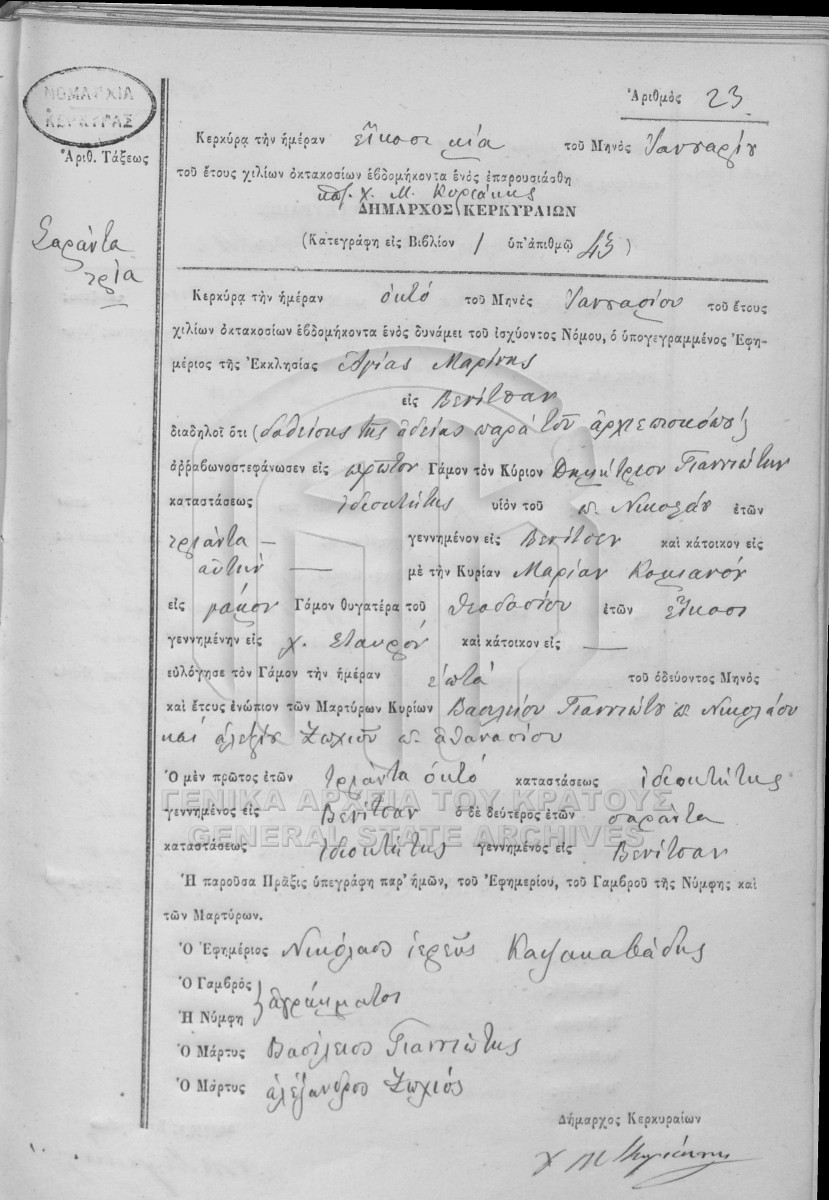 ΝΟΜΑΡΧΙΑ
ΚΕΡΚΥΡΑΣ
Ἀριθ. Τάξεως
Σαράντα
τρία
Ἀριθμὸς 23
Κερκύρᾳ τὴν ἡμέραν εἴκοσι μία τοῦ Μηνὸς Ἰανουαρίου
τοῦ ἔτους χιλίων ὀκτακοσίων ἑβδομήκοντα ἑνὸς ἐπαρουσιάσθη
Χ. Μ. Κυριάκης
ΔΗΜΑΡΧΟΣ ΚΕΡΚΥΡΑΙΩΝ
(Κατεγράφη εἰς Βιβλίον 1 ὑπ' ἀριθμῷ 43)
Κερκύρᾳ τὴν ἡμέραν ὀκτό τοῦ Μηνὸς Ἰανουαρίου τοῦ ἔτους
χιλίων ὀκτακοσίων ἑβδομήκοντα ἑνὸς δυνάμει τοῦ ἰσχύοντος Νόμου, ὁ ὑπογεγραμμένος Ἐφη-
μέριος τῆς Ἐκκλησίας Ἁγίας Μαρίνης
εἰς Βενίτσαν
διαδηλοῖ ὅτι (δοθείσης τῆς ἀδείας παρὰ τοῦ ἀρχιεπισκόπου)
ἀῤῥαβωνοστεφάνωσεν εἰς πρῶτον Γάμον τὸν Κύριον Δημήτριον Γιαννιώτην
καταστάσεως ἰδιοκτήτης υἱὸν τοῦ π. Νικολάου ἐτῶν
τριάντα — γεννημένον εἰς Βενίτσαν καὶ κάτοικον εἰς
αὐτήν — μὲ τὴν Κυρίαν Μαρίαν
εἰς Γάμον θυγατέρα τοῦ Θεοδοσίου ἐτῶν εἴκοσι
γεννημένην εἰς χ. Σταυρόν καὶ κάτοικον εἰς —
εὐλόγησε τὸν Γάμον τὴν ἡμέραν ἑπτά τοῦ ὁδεύοντος Μηνὸς
καὶ ἔτους ἐνώπιον τῶν Μαρτύρων Κυρίων Βασιλείου Γιαννιώτου π. Νικολάου
καὶ Ζωχιοῦ π. Ἀθανασίου
Ὁ μὲν πρῶτος ἐτῶν τριάντα ὀκτό καταστάσεως ἰδιοκτήτης
γεννημένος εἰς Βενίτσαν ὁ δὲ δεύτερος ἐτῶν σαράντα
καταστάσεως ἰδιοκτήτης γεννημένος εἰς Βενίτσαν
Ἡ παροῦσα Πρᾶξις ὑπεγράφη παρ' ἡμῶν, τοῦ Ἐφημερίου, τοῦ Γαμβροῦ τῆς Νύμφης καὶ
τῶν Μαρτύρων.
Ὁ Ἐφημέριος Νικόλαος ἱερεὺς
Ὁ Γαμβρὸς
ἀγράμματοι
Ἡ Νύμφη
Ὁ Μάρτυς Βασίλειος Γιαννιώτης
Ὁ Μάρτυς ἀλέξανδρος Ζωχιός
Δήμαρχος Κερκυραίων
ΓΕΝΙΚΑ ΑΡΧΕΙΑ ΤΟΥ ΚΡΑΤΟΥΣ
GENERAL STATE ARCHIVES